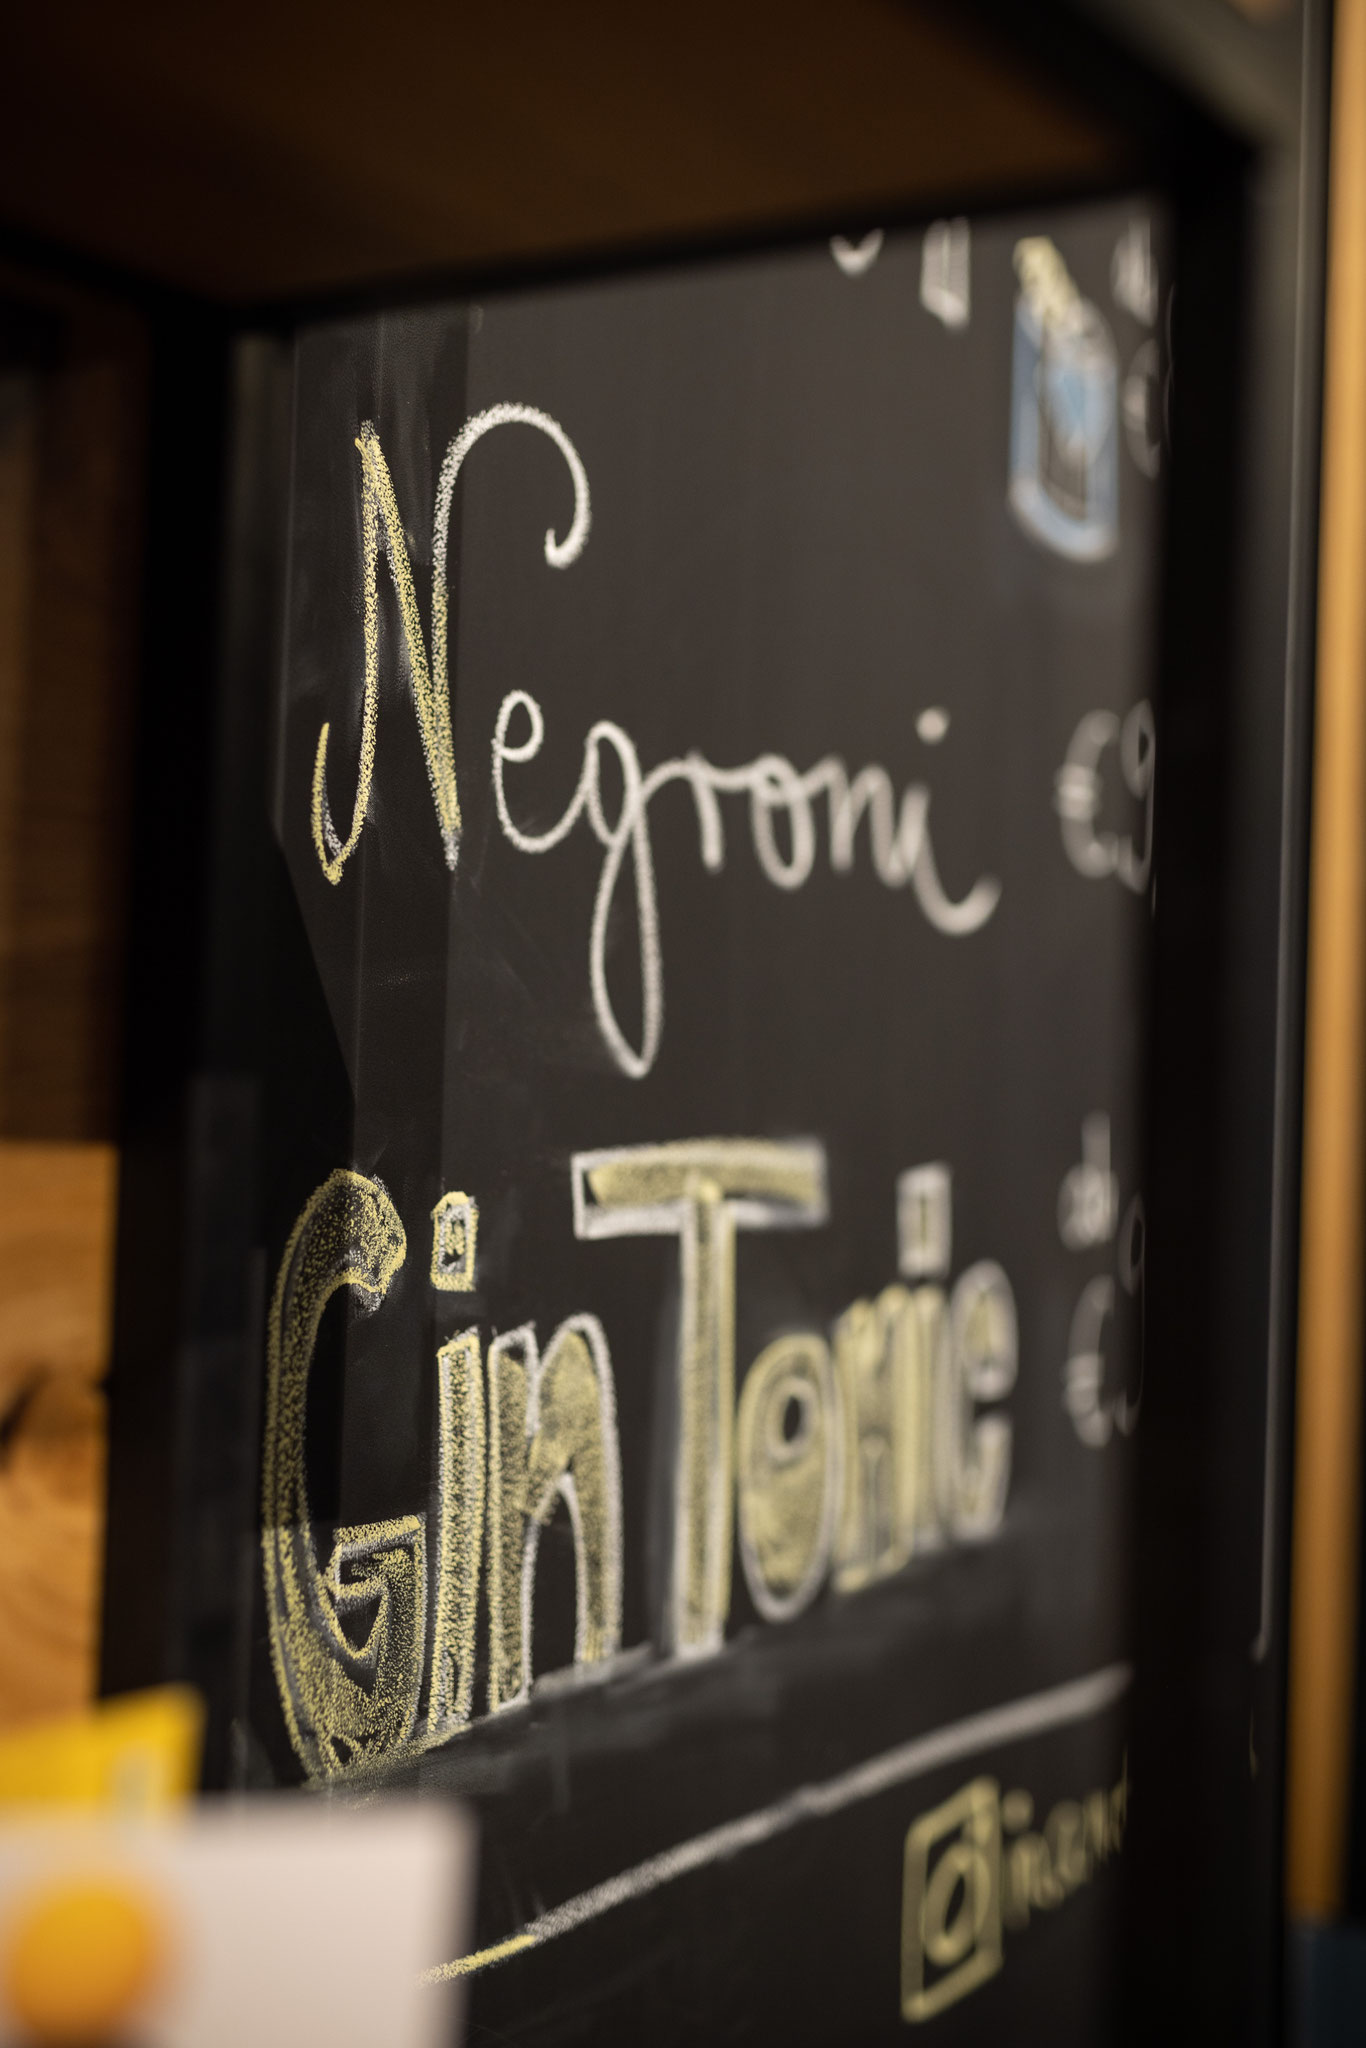 Negroni €9
Gin Tonic ab €9